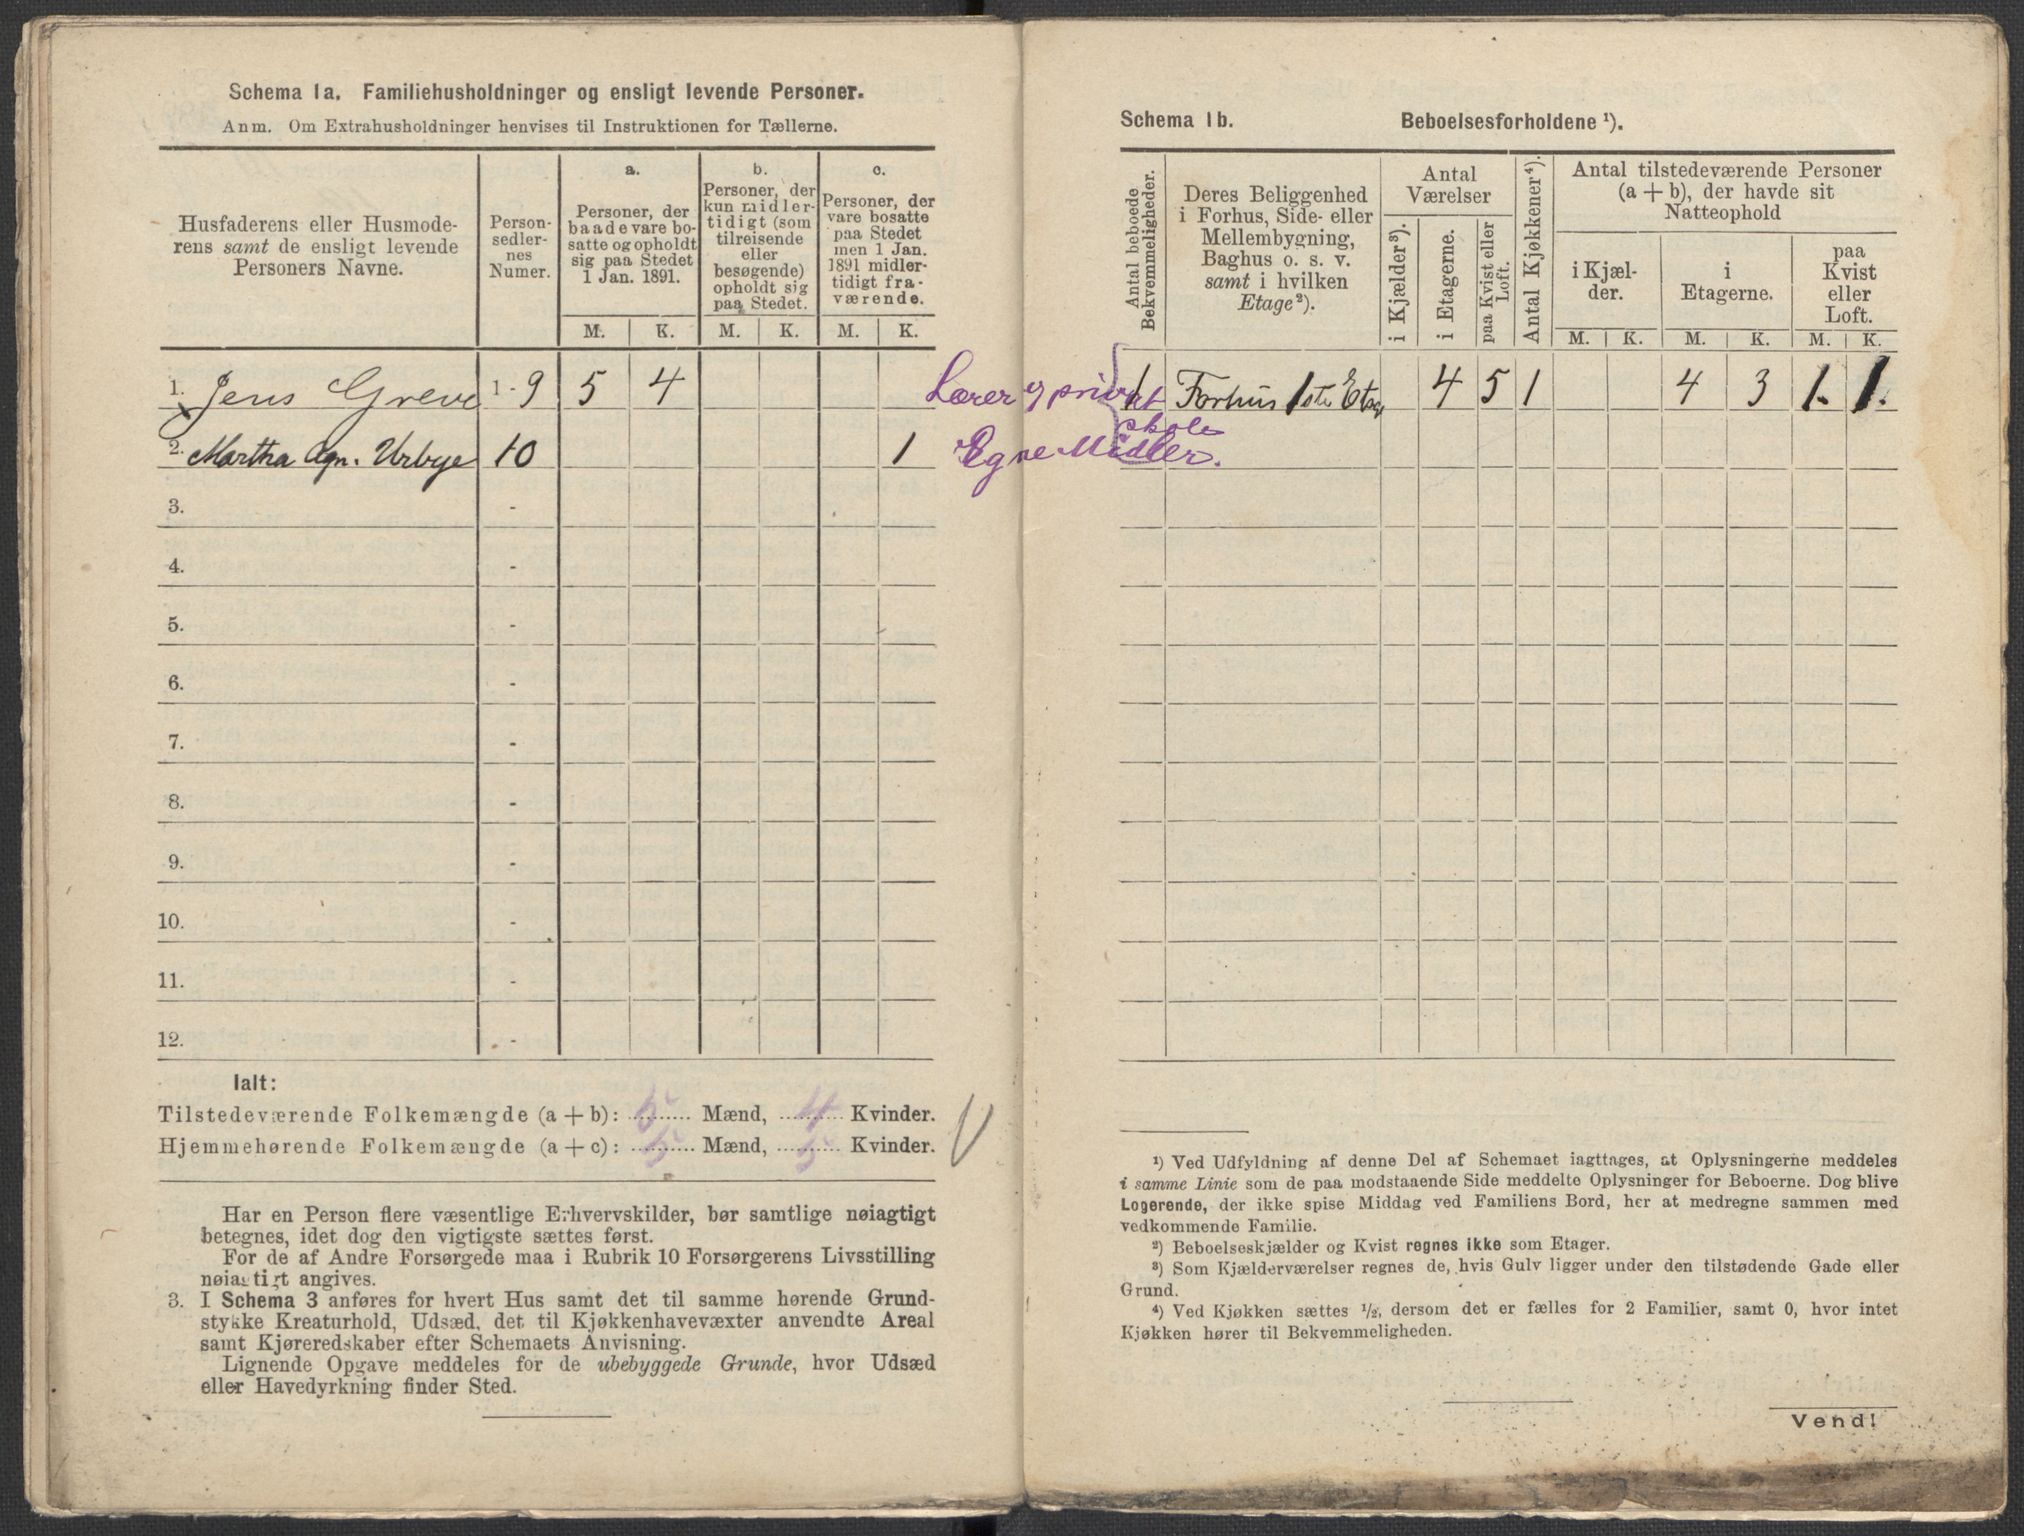 Schema 1a. Familiehusholdninger og ensligt levende Personer.
Anm. Om Extrahusholdninger henvises til Instruktionen for Tællerne.
Husfaderens eller Husmode-
rens samt de ensligt levende
Personers Navne.
Person-
sedler-
nes
Numer.
a.
Personer, der
baade vare bo-
satte og opholdt
sig paa Stedet
1 Jan. 1891.
b.
Personer, der
kun midler-
tidigt (som
tilreisende
eller
besøgende)
opholdt sig
paa Stedet.
c.
Personer, der
vare bosatte
paa Stedet
men 1 Jan.
1891 midler-
tidigt fra-
værende.
M. K. M. K. M. K.
1. Jens Greve 1 - 9 5 4
Lærer v privat
skole
2. Martha Agn. Urbye 10 1
Egne Midler.
3. -
4. -
5. -
6. -
7. -
8. -
9. -
10. -
11. -
12. -
Ialt:
Tilstedeværende Folkemængde (a + b): 5 Mænd, 4 Kvinder.
Hjemmehørende Folkemængde (a + c): 5 Mænd, 5 Kvinder.
Har en Person flere væsentlige Erhvervskilder, bør samtlige nøiagtigt
betegnes, idet dog den vigtigste sættes først.
For de af Andre Forsørgede maa i Rubrik 10 Forsørgerens Livsstilling
nøiagtigt angives.
3. I Schema 3 anføres for hvert Hus samt det til samme hørende Grund-
stykke Kreaturhold, Udsæd, det til Kjøkkenhavevæxter anvendte Areal
samt Kjøreredskaber efter Schemaets Anvisning.
Lignende Opgave meddeles for de ubebyggede Grunde, hvor Udsæd
eller Havedyrkning finder Sted.
Schema 1b. Beboelsesforholdene ¹).
Antal beboede
Bekvemmeligheder.
Deres Beliggenhed
i Forhus, Side- eller
Mellembygning,
Baghus o. s. v.
samt i hvilken
Etage²).
Antal
Værelser
i Kjælder³).
i Etagerne.
paa Kvist eller
Loft.
Antal Kjøkkener⁴).
Antal tilstedeværende Personer
(a + b), der havde sit
Natteophold
i Kjæl-
der.
i
Etagerne.
paa
Kvist
eller
Loft.
M. K. M. K. M. K.
1 Forhus 1ste Etag 4 5 1 4 3 1. 1.
¹) Ved Udfyldning af denne Del af Schemaet iagttages, at Oplysningerne meddeles
i samme Linie som de paa modstaaende Side meddelte Oplysninger for Beboerne. Dog blive
Logerende, der ikke spise Middag ved Familiens Bord, her at medregne sammen med
vedkommende Familie.
²) Beboelseskjælder og Kvist regnes ikke som Etager.
³) Som Kjælderværelser regnes de, hvis Gulv ligger under den tilstødende Gade eller
Grund.
⁴) Ved Kjøkken sættes ½, dersom det er fælles for 2 Familier, samt 0, hvor intet
Kjøkken hører til Bekvemmeligheden.
Vend!